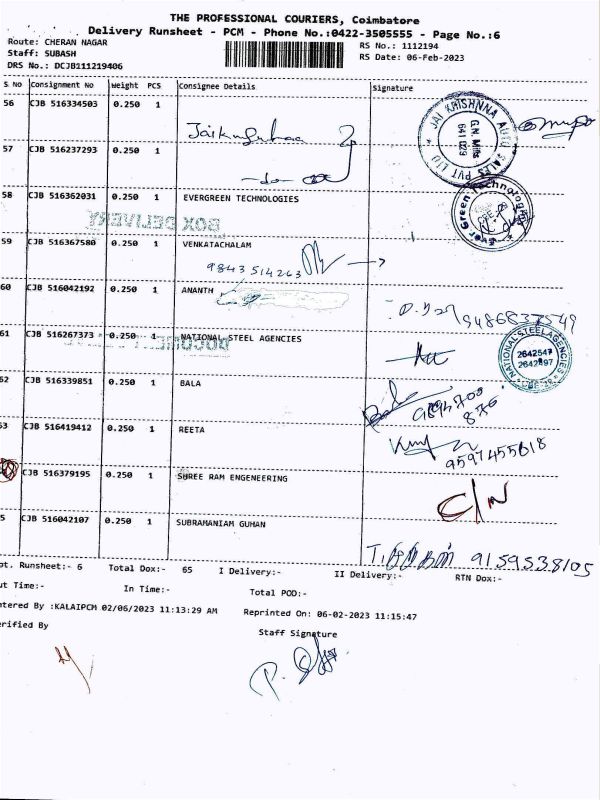 THE PROFESSIONAL COURIERS, Coimbatore
Delivery Runsheet - PCM - Phone No.:0422-3505555 - Page No.:6
Route: CHERAN NAGAR
Staff: SUBASH
DRS No.: DCJB111219406
RS No.: 1112194
RS Date: 06-Feb-2023
S No Consignment No Weight PCS Consignee Details Signature
56 CJB 516334503 0.250 1
JAI KRISHNNA AUTO SALES PVT LTD
G.N. Mills
641 029
57 CJB 516237293 0.250 1
58 CJB 516362031 0.250 1 EVERGREEN TECHNOLOGIES
Ever Green Technologies
BOX DELIVERY
59 CJB 516367580 0.250 1 VENKATACHALAM
9843514263
60 CJB 516042192 0.250 1 ANANTH
9486837549
61 CJB 516267373 0.250 1 NATIONAL STEEL AGENCIES
NATIONAL STEEL AGENCIES
2642547
2642897
62 CJB 516339851 0.250 1 BALA
9894700
876
63 CJB 516419412 0.250 1 REETA
9597455618
CJB 516379195 0.250 1 SHREE RAM ENGENEERING
C/N
5 CJB 516042107 0.250 1 SUBRAMANIAM GUHAN
9159538105
pt. Runsheet:- 6 Total Dox:- 65 I Delivery:- II Delivery:- RTN Dox:-
ut Time:- In Time:- Total POD:-
ntered By :KALAIPCM 02/06/2023 11:13:29 AM Reprinted On: 06-02-2023 11:15:47
erified By Staff Signature